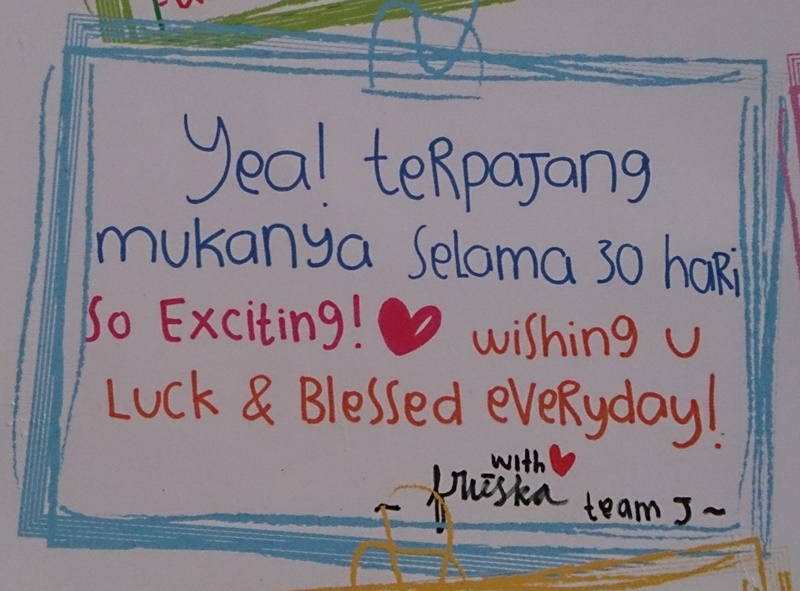 Yea! terpajang
mukanya selama 30 hari
So Exciting! wishing u
Luck & Blessed everyday!
with
~ team J ~